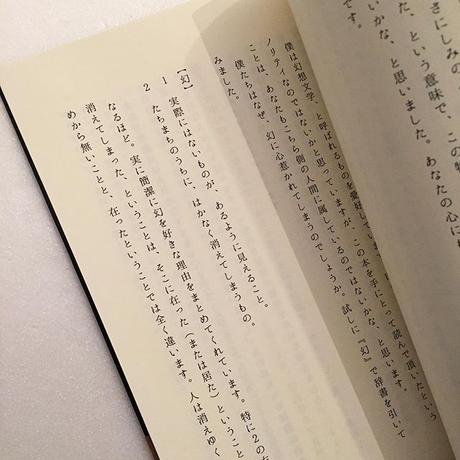 さにしみの
た、という意味で、この特
いかな、と思いました。あなたの心に
です。
僕は幻想文学、と呼ばれるものを愛好して
ノリティなのではないかと思っていますが、この本を手にとって読んで頂いたという
ことは、あなたもこちら側の人間に属しているのではないかな、と思います。
僕たちはなぜ、幻に心惹かれてしまうのでしょうか。試しに『幻』で辞書を引いて
みました。
【幻】
1 実際にはないものが、あるように見えること。
2 たちまちのうちに、はかなく消えてしまうもの。
なるほど。実に簡潔に幻を好きな理由をまとめてくれています。特に2の
消えてしまった、ということは、そこに在った(または居た)ということ
めから無いことと、在ったということでは全く違います。人は消えゆく